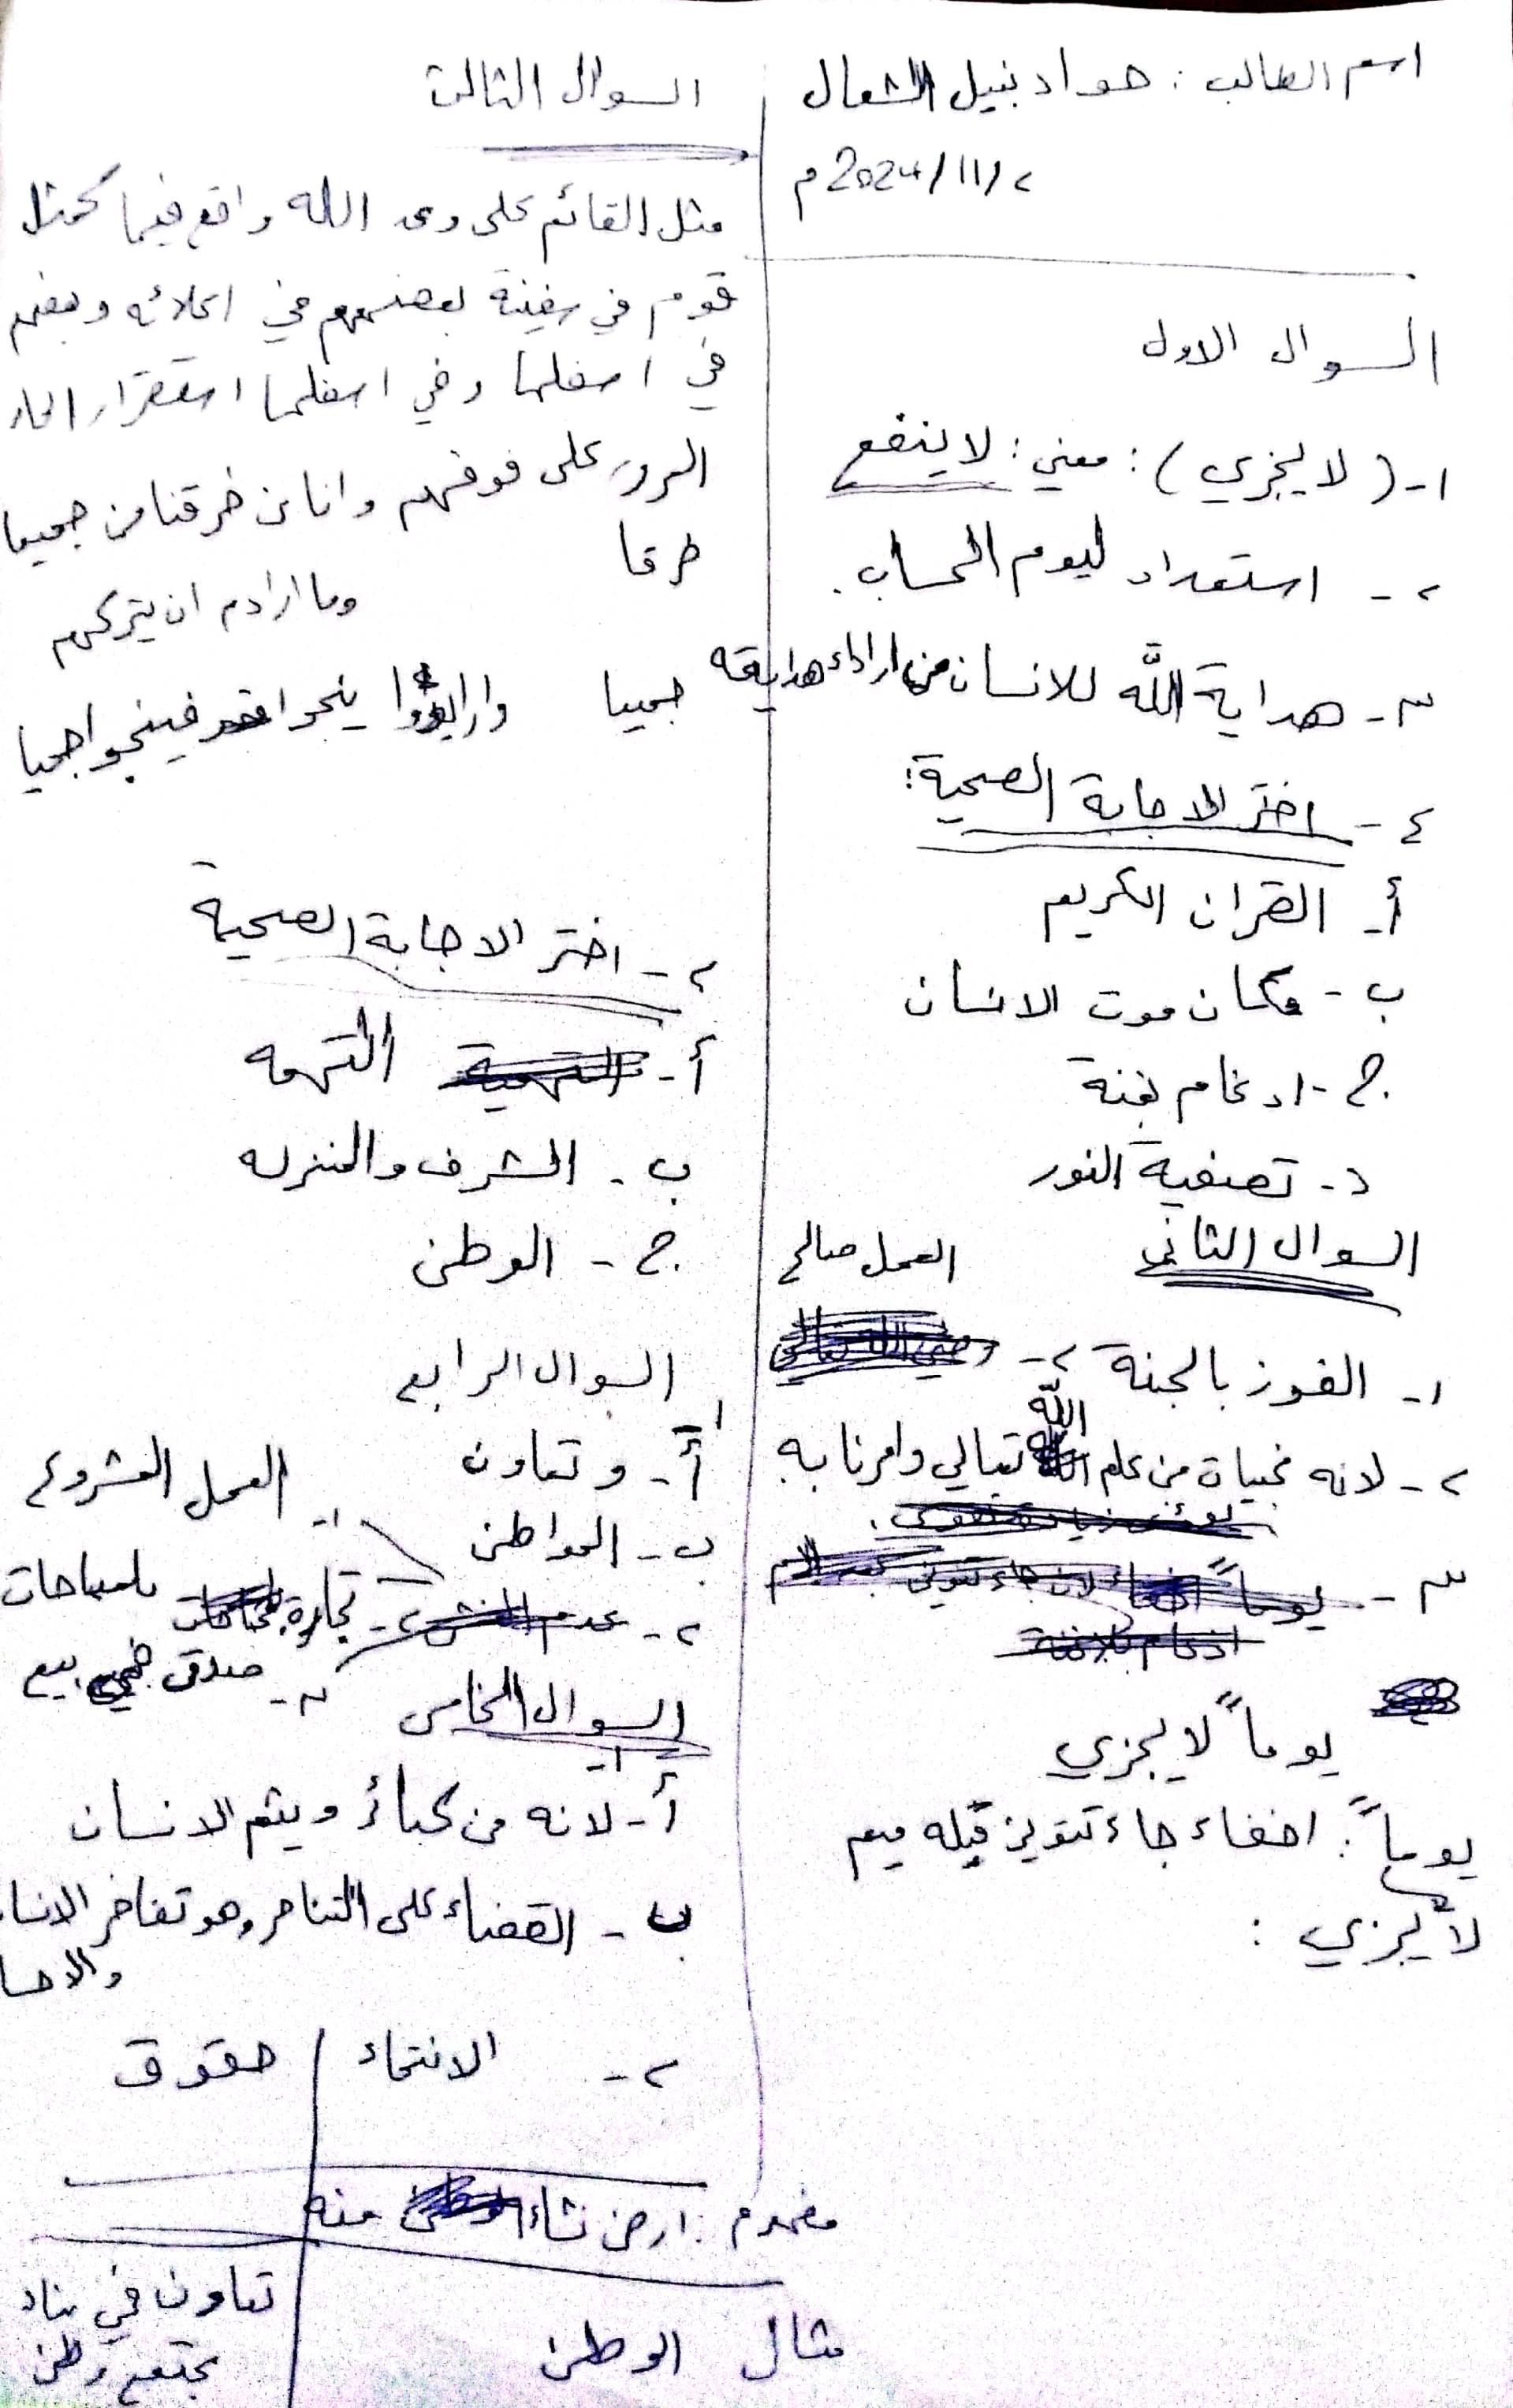 اسم الطالب : جواد نبيل الشعال
٢ / ١١ / 2024 م
السوال الاول
١- ( لا يجزي ) : معني : لا ينفع
٢ - استعداد ليوم الحساب .
٣ - هداية اللّٰه للانسان من اراد هدايته
٤ - اختر الاجابة الصحية :
أ- القران الكريم
ب - مكان موت الانسان
ج - ادغام بغنة
د - تصفية النور
السوال الثاني
العمل صالح
١- الفوز بالجنة ٢ -
٢ - لانه غيبيات من علم اللّٰه تعالي وامرنا به
٣ -
يوماً لا يجزي
يوماً : اخفاء جاء تنوين قبله ميم
لا يجزي :
السوال الثالث
مثل القائم على حدود الله واقع فيها كمثل
قوم في سفينة بعضهم في اعلائه وبعضهم
في اسفلها وفي اسفلها استقرار الماء
المرور على فوقهم وانا خرقنا من جميعا
خرقا
وما ارادم ان يتركهم
جميا وارادوا ينجوا فينجوا جميا
٢ - اختر الاجابة الصحية
أ - التهمه
ب - الشرف والمنزله
ج - الوطن
السوال الرابع
١
أ - وتعاون
ب - المواطن
١ - العمل المشروع
٢ - تجارة بلمباحات
٣ - صدق في بيع
السوال الخامس
١-
أ - لانه من كبائر ويثم الانسان
ب - القضاء على التناحر وهو تفاخر الانسا
والاحسا
٢ - الانتماء / حقوق
مفهوم : ارض نشاء منه
مثال الوطن
تعاون في بناء
مجتمع وطن